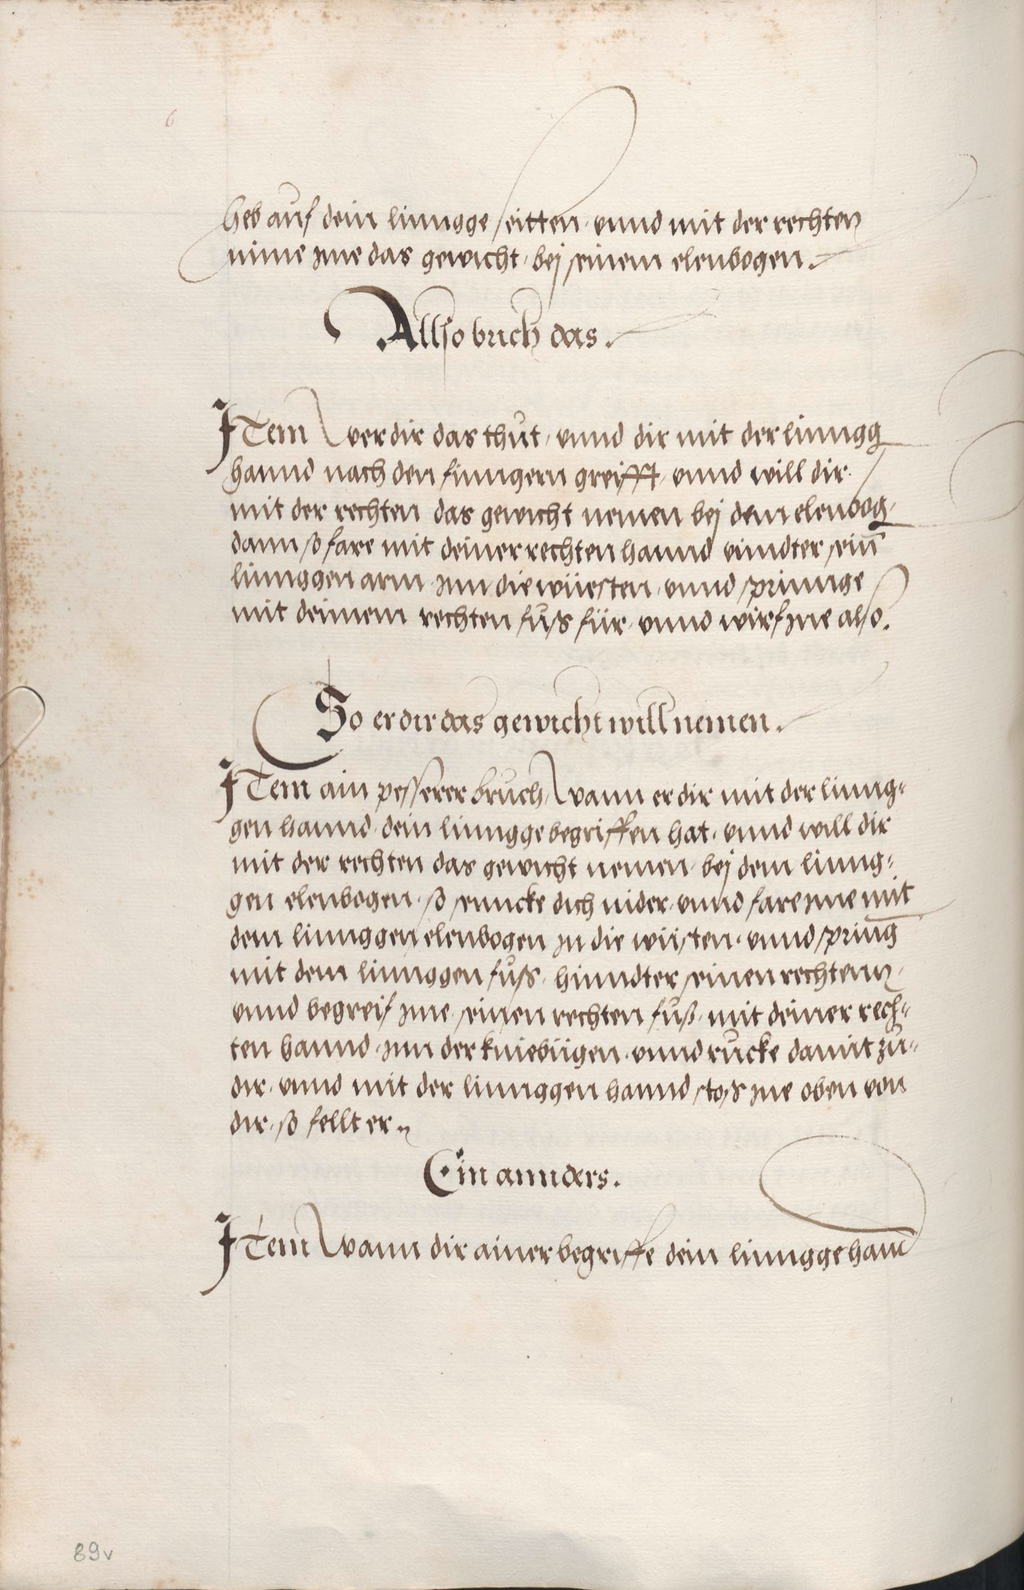 heb auf dein linngge seitten, vnnd mit der rechten
nime jme das gewicht, bej seinem elenbogen.
Allso brich das.
JTem wer dir das thut, vnnd dir mit der linngg
hannd nach den finngern greifft, vnnd will dir
mit der rechten das gewicht nemen bej dem elenbog,
dann so fare mit deiner rechten hannd vnndter sein̄
linnggen arm, jnn die wüesten, vnnd sprinnge
mit deinem rechten fuss für, vnnd wirf jne also.
So er dir das gewicht will nemen.
JTem ain pesserer bruch, wann er dir mit der linng-
gen hannd, dein linngge begriffen hat, vnnd will dir
mit der rechten das gewicht nemen, bej dem linng-
gen elenbogen, so senncke dich nider, vnnd fare jme mit
dem linnggen elenbogen jn die wüsten, vnnd spring
mit dem linnggen fuss, hinndter seinen rechtenn,
vnnd begreif jme, seinen rechten fuß, mit deiner rech-
ten hannd, jnn der kniebügen, vnnd rucke damit zu-
dir, vnnd mit der linnggen hannd stoss jne oben von
dir, so fellt er.
Ein annders.
JTem wann dir ainer begriffe dein linngge hannd
89v